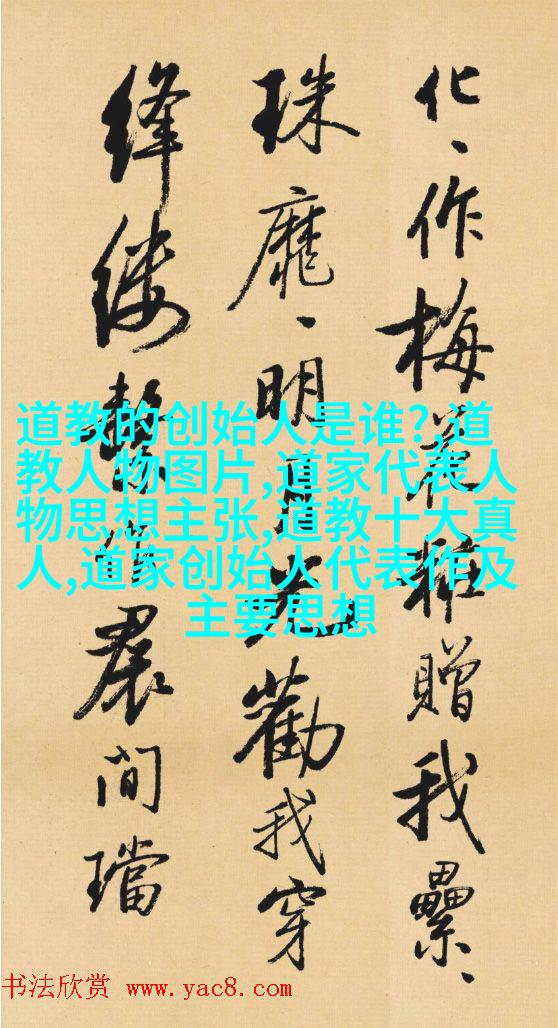 化、作梅花糚贈我纍、
珠靡、明月光勸我穿
絳縷繫作裠间璫
道教的创始人是谁?,道
教人物图片,道家代表人
物思想主张,道教十大真
人,道家创始人代表作及
主要思想
书法欣赏 www.yac8.com